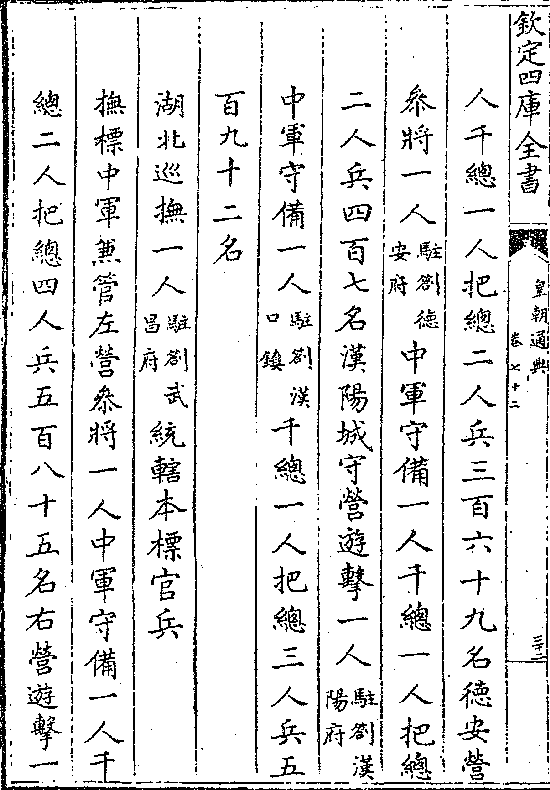 欽定四庫全書
皇朝通典
卷七十二
三十二
人千總一人把總二人兵三百六十九名德安營
叅將一人駐劄德安府中軍守備一人千總一人把總
二人兵四百七名漢陽城守營遊擊一人駐劄漢陽府
中軍守備一人駐劄漢口鎮千總一人把總三人兵五
百九十二名
湖北巡撫一人駐劄武昌府統轄本標官兵
撫標中軍兼管左營叅將一人中軍守備一人千
總二人把總四人兵五百八十五名右營遊擊一